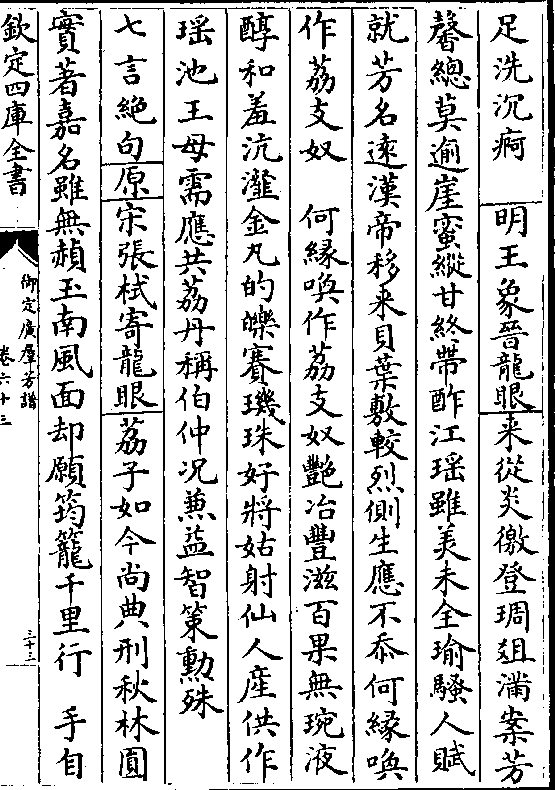 足洗沉痾　明王象晉龍眼来從炎徼登琱俎滿案芳
馨總莫逾崖蜜縱甘終帶酢江瑶雖美未全瑜騷人賦
就芳名遠漢帝移来貝葉敷較烈側生應不忝何縁喚
作荔支奴　何縁喚作荔支奴艷冶豐滋百果無琬液
醇和羞沆瀣金丸的皪賽璣珠好將姑射仙人産供作
瑶池王母需應共荔丹稱伯仲况兼益智策勲殊
七言絶句原宋張栻寄龍眼荔子如今尚典刑秋林圓
實著嘉名雖無頳玉南風面却願筠籠千里行　手自
欽定四庫全書
御定廣羣芳譜
卷六十三
三十三